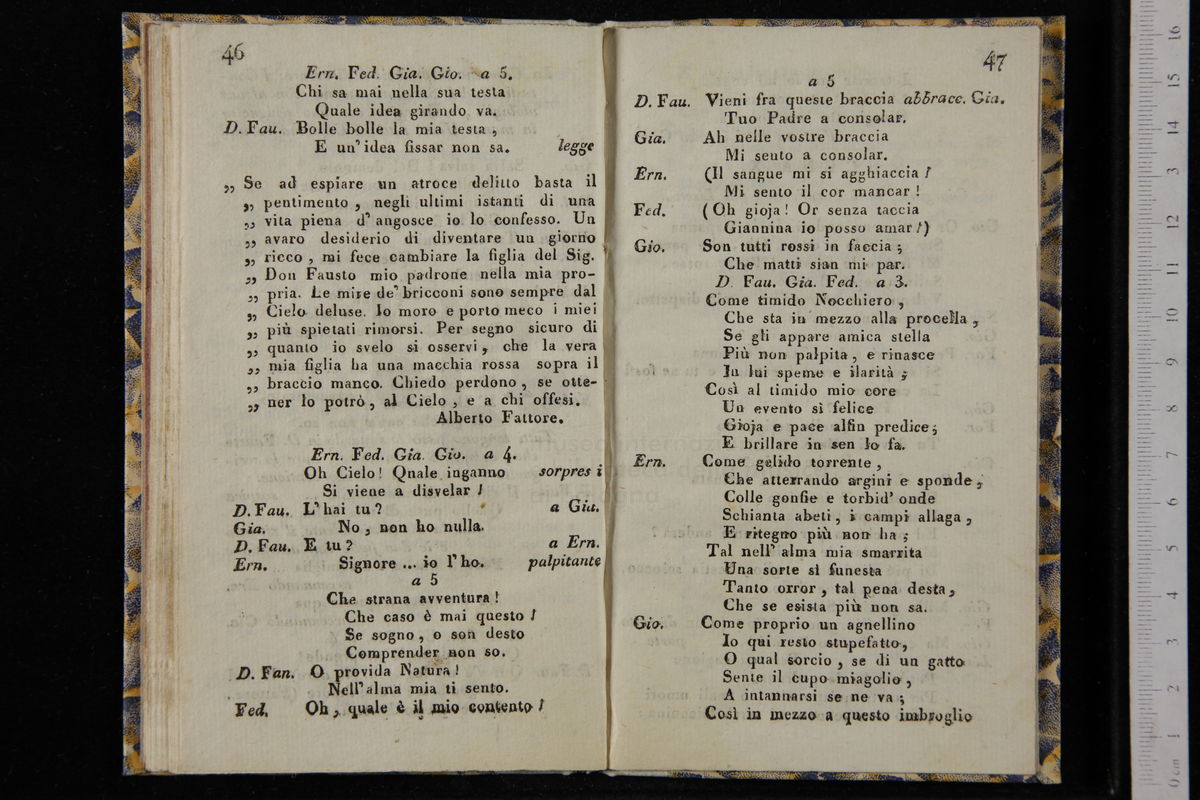 46
Ern. Fed. Gia. Gio. a 5.
Chi sa mai nella sua testa
Quale idea girando va.
D. Fau. Bolle bolle la mia testa ,
E un' idea fissar non sa. legge
,, Se ad espiare un atroce delitto basta il
,, pentimento , negli ultimi istanti di una
,, vita piena d' angosce io lo confesso. Un
,, avaro desiderio di diventare un giorno
,, ricco , mi fece cambiare la figlia del Sig.
,, Don Fausto mio padrone nella mia pro-
,, pria. Le mire de' bricconi sono sempre dal
,, Cielo deluse. Io moro e porto meco i miei
,, più spietati rimorsi. Per segno sicuro di
,, quanto io svelo si osservi , che la vera
,, mia figlia ha una macchia rossa sopra il
,, braccio manco. Chiedo perdono , se otte-
,, ner lo potrò , al Cielo , e a chi offesi.
Alberto Fattore.
Ern. Fed. Gia. Gio. a 4.
Oh Cielo ! Quale inganno sorpresi
Si viene a disvelar !
D. Fau. L' hai tu ? a Gia.
Gia. No , non ho nulla.
D. Fau. E tu ? a Ern.
Ern. Signore ... io l' ho. palpitante
a 5
Che strana avventura !
Che caso è mai questo !
Se sogno , o son desto
Comprender non so.
D. Fan. O provida Natura !
Nell' alma mia ti sento.
Fed. Oh , quale è il mio contento !
47
a 5
D. Fau. Vieni fra queste braccia abbracc. Gia.
Tuo Padre a consolar.
Gia. Ah nelle vostre braccia
Mi sento a consolar.
Ern. (Il sangue mi si agghiaccia !
Mi sento il cor mancar !
Fed. ( Oh gioja ! Or senza taccia
Giannina io posso amar !)
Gio. Son tutti rossi in faccia ;
Che matti sian mi par.
D. Fau. Gia. Fed. a 3.
Come timido Nocchiero ,
Che sta in mezzo alla procella ,
Se gli appare amica stella
Più non palpita , e rinasce
In lui speme e ilarità ;
Così al timido mio core
Un evento sì felice
Gioja e pace alfin predice ;
E brillare in sen lo fa.
Ern. Come gelido torrente ,
Che atterrando argini e sponde ,
Colle gonfie e torbid' onde
Schianta abeti , i campi allaga ,
E ritegno più non ha ;
Tal nell' alma mia smarrita
Una sorte sì funesta
Tanto orror , tal pena desta ,
Che se esista più non sa.
Gio. Come proprio un agnellino
Io qui resto stupefatto ,
O qual sorcio , se di un gatto
Sente il cupo miagolio ,
A intannarsi se ne va ;
Così in mezzo a questo imbroglio